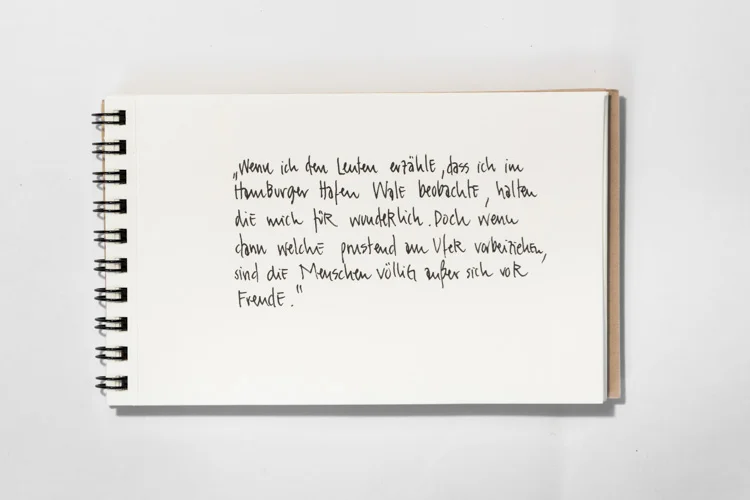 „Wenn ich den Leuten erzähle, dass ich im
Hamburger Hafen Wale beobachte, halten
die mich für wunderlich. Doch wenn
dann welche prustend am Ufer vorbeiziehen,
sind die Menschen völlig außer sich vor
Freude."